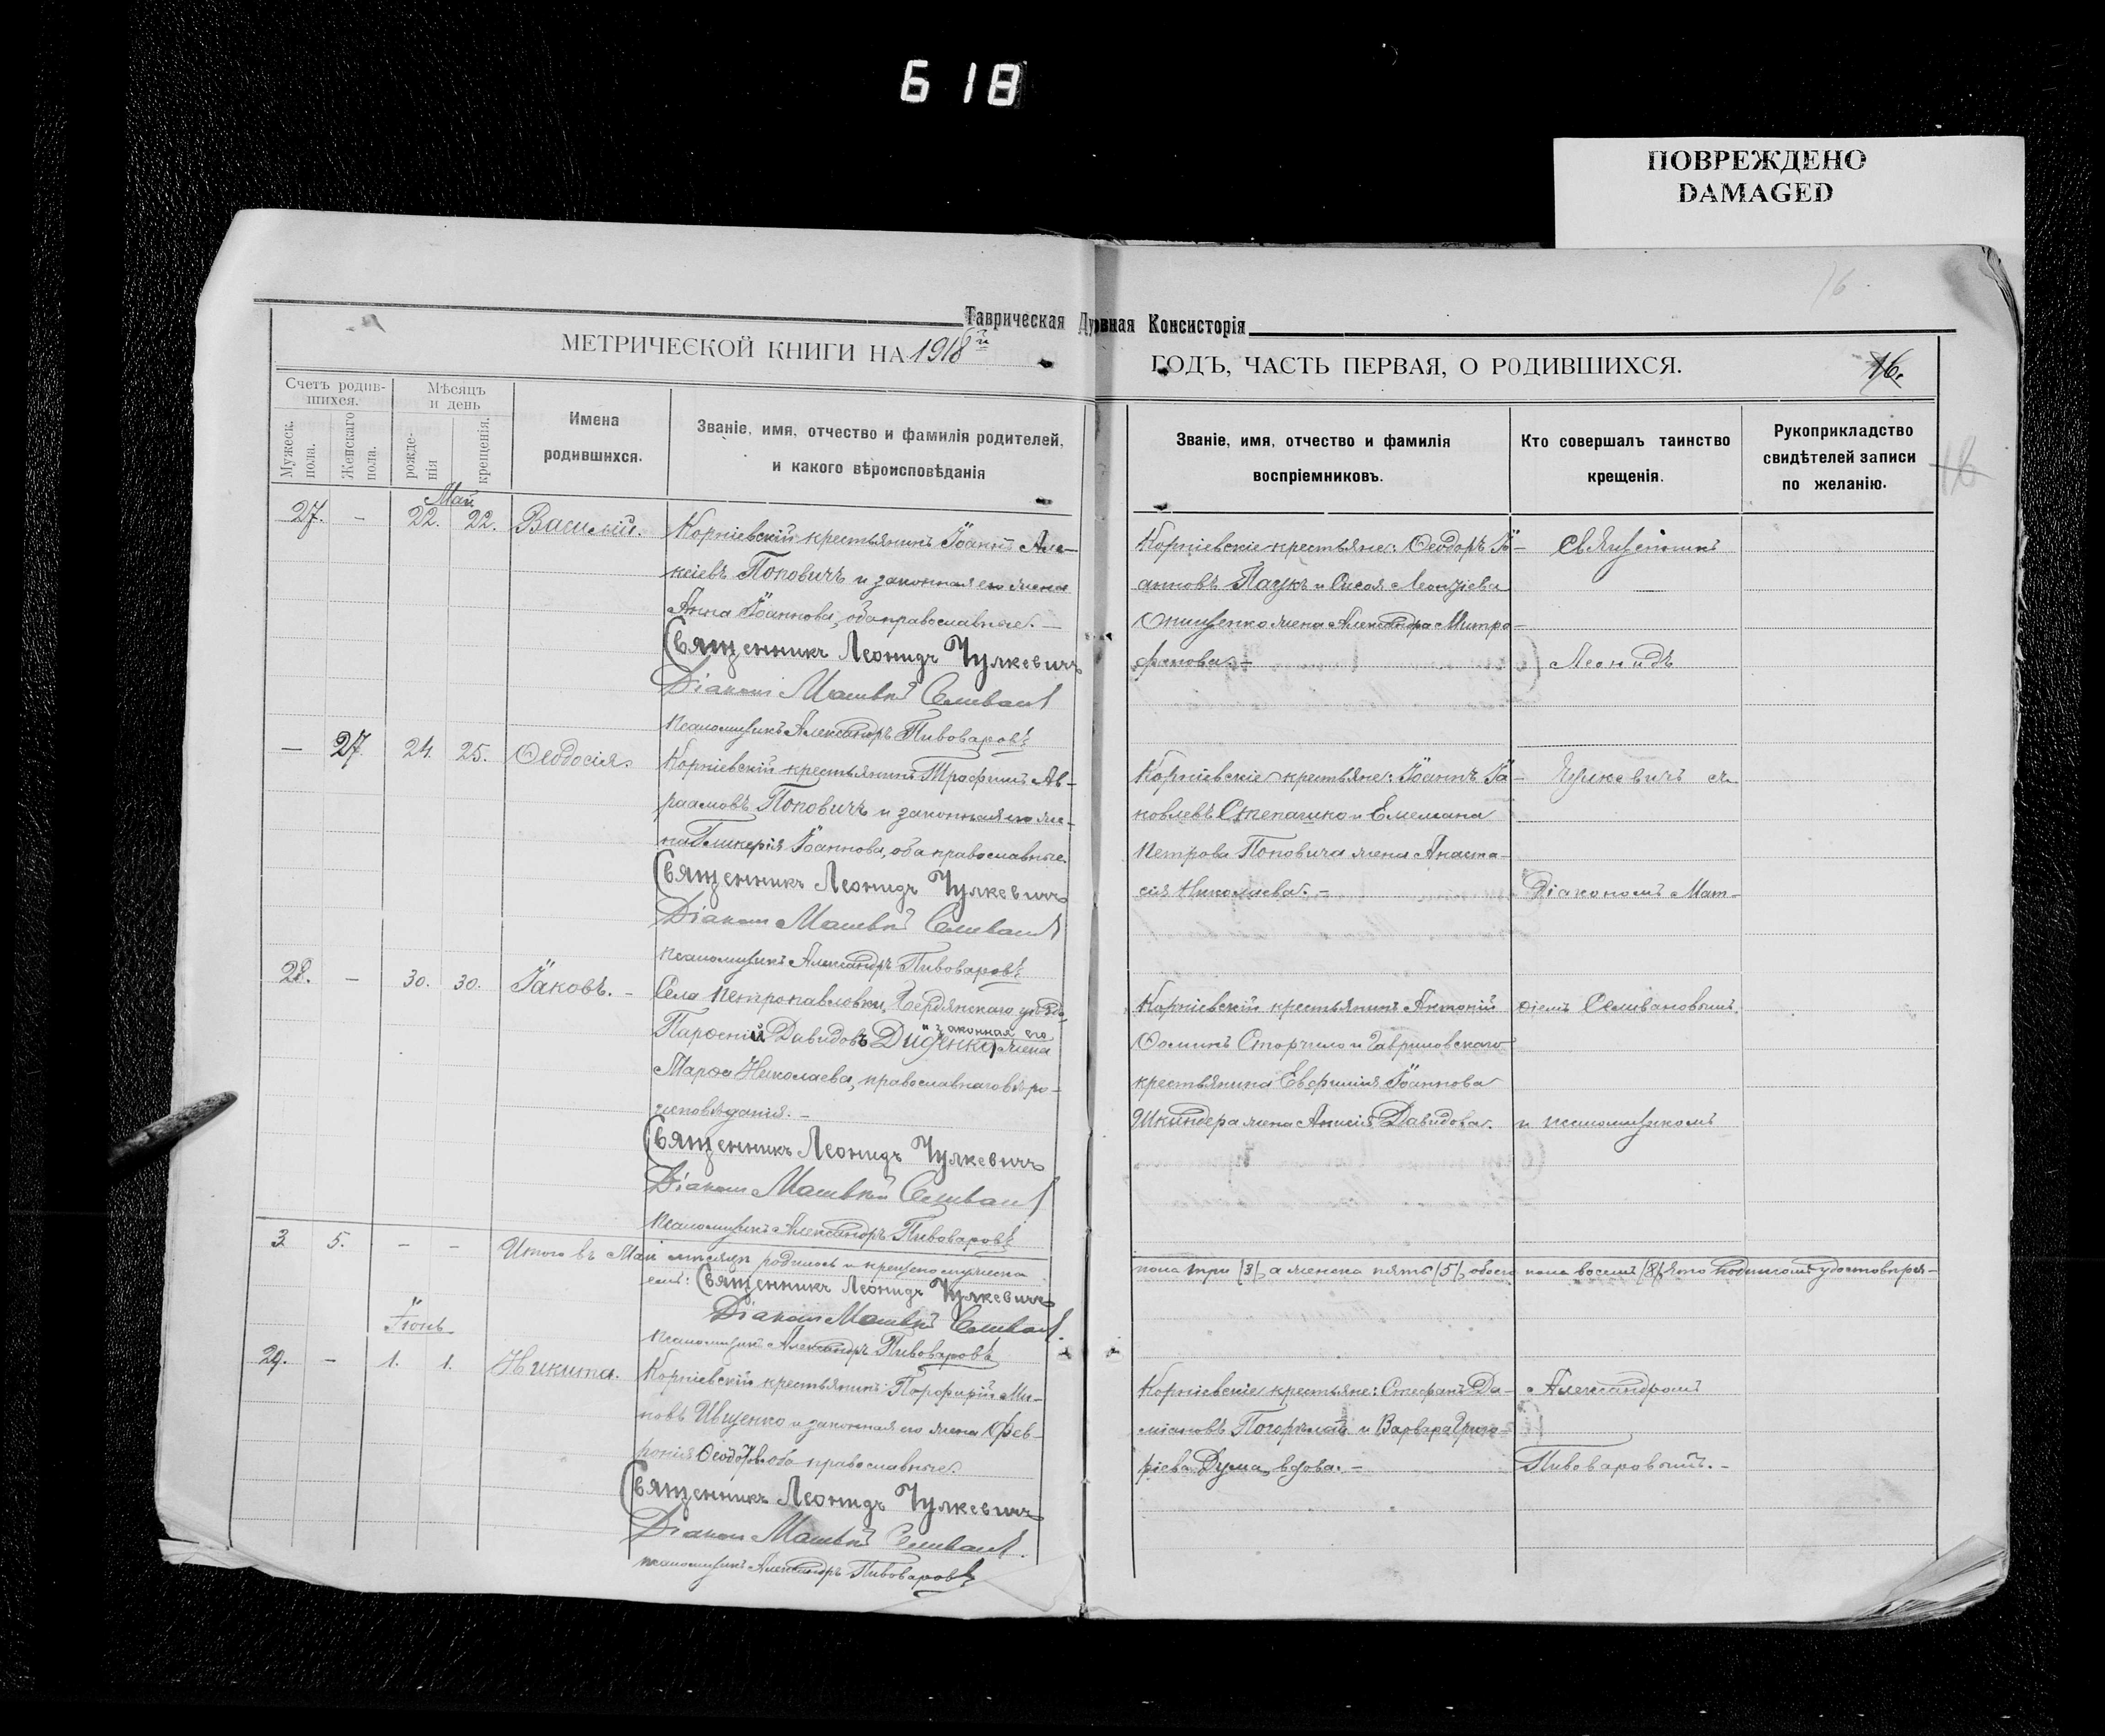 618
ПОВРЕЖДЕНО
DAMAGED
16.
Таврическая Духовная Консисторія
МЕТРИЧЕСКОЙ КНИГИ НА 1918й
ГОДЪ, ЧАСТЬ ПЕРВАЯ, О РОДИВШИХСЯ.
16.
16
Счетъ родив-
шихся.
Мужеск. пола.
Женскаго пола.
Мѣсяцъ
и день
рожде-
нія
крещенія.
Имена
родившихся.
Званіе, имя, отчество и фамилія родителей,
и какого вѣроисповѣданія
Званіе, имя, отчество и фамилія
воспріемниковъ.
Кто совершалъ таинство
крещенія.
Рукоприкладство
свидѣтелей записи
по желанію.
Май.
27. – 22. 22. Василій.
Корніевскій крестьянинъ Іоаннъ Але-
ксіевъ Поповичъ и законная его жена
Анна Іоаннова, оба православные. –
Священникъ Леонидъ Чулкевичъ
Діаконъ Матвѣй Селиванов
Псаломщикъ Александръ Пивоваровъ
Корніевскіе крестьяне: Ѳеодоръ Іо-
анновъ Паукъ и Леонтіева
Онищенко жена Александра Митро-
фанова. –
Священникъ
Леонидъ
– 27. 24. 25. Ѳеодосія.
Корніевскій крестьянинъ Трофимъ Ав-
раамовъ Поповичъ и законная его же-
на Гликерія Іоаннова, оба православные.
Священникъ Леонидъ Чулкевичъ
Діаконъ Матвѣй Селиванов
Псаломщикъ Александръ Пивоваровъ
Корніевскіе крестьяне: Іоаннъ Іа-
ковлевъ Степашко и Емеліана
Петрова Поповича жена Анаста-
сія Николаева. –
Чулкевичъ съ
Діакономъ Мат-
28. – 30. 30. Іаковъ. –
Села Петропавловки, Бердянскаго уѣзда
Парѳеній Давидовъ Диденко и законная его жена
Марѳа Николаева, православнаго вѣро-
исповѣданія. –
Священникъ Леонидъ Чулкевичъ
Діаконъ Матвѣй Селиванов
Псаломщикъ Александръ Пивоваровъ
Корніевскій крестьянинъ Антоній
Ѳоминъ Сторчило и Гавриловскаго
крестьянина Евфимія Іоаннова
Шкиндера жена Анисія Давидова.
ѳіемъ Селивановымъ
и псаломщикомъ
3 5. – – Итого въ Маѣ мѣсяцѣ родилось и крещено мужеска
пола три /3/, а женска пять /5/, обоего пола восемь /8/, что подписомъ удостовѣря-
емъ: Священникъ Леонидъ Чулкевичъ
Діаконъ Матвѣй Селиванов.
Псаломщикъ Александръ Пивоваровъ
Іюнь
29. – 1. 1. Никита.
Корніевскій крестьянинъ Порфирій Ми-
новъ Ивщенко и законная его жена Фев-
ронія Ѳеодорова, оба православные.
Священникъ Леонидъ Чулкевичъ
Діаконъ Матвѣй Селиванов.
псаломщикъ Александръ Пивоваровъ
Корніевскіе крестьяне: Стефанъ Да-
міановъ и Варвара Григо-
ріева Дума, вдова. –
Александромъ
Пивоваровымъ. –